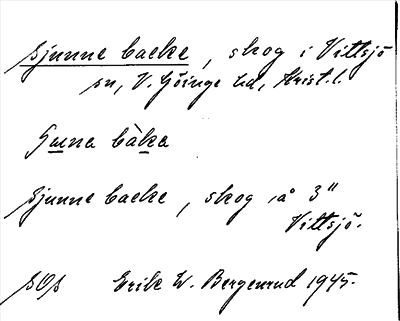 Sjunne backe, skog i Vittsjö
sn, V. Göinge hd, Krist. l.
bàka
Sjunne backe, skog å 3"
Vittsjö.
SOs Erik W. Bergenrud 1945.